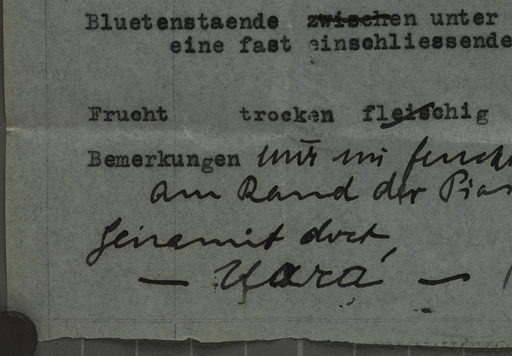 Bluetenstaende zwischen unter
eine fast einschliessende
Frucht trocken fleischig
Bemerkungen nur im feucht
am Rand der Pias
Geinamit dort
— Yara —